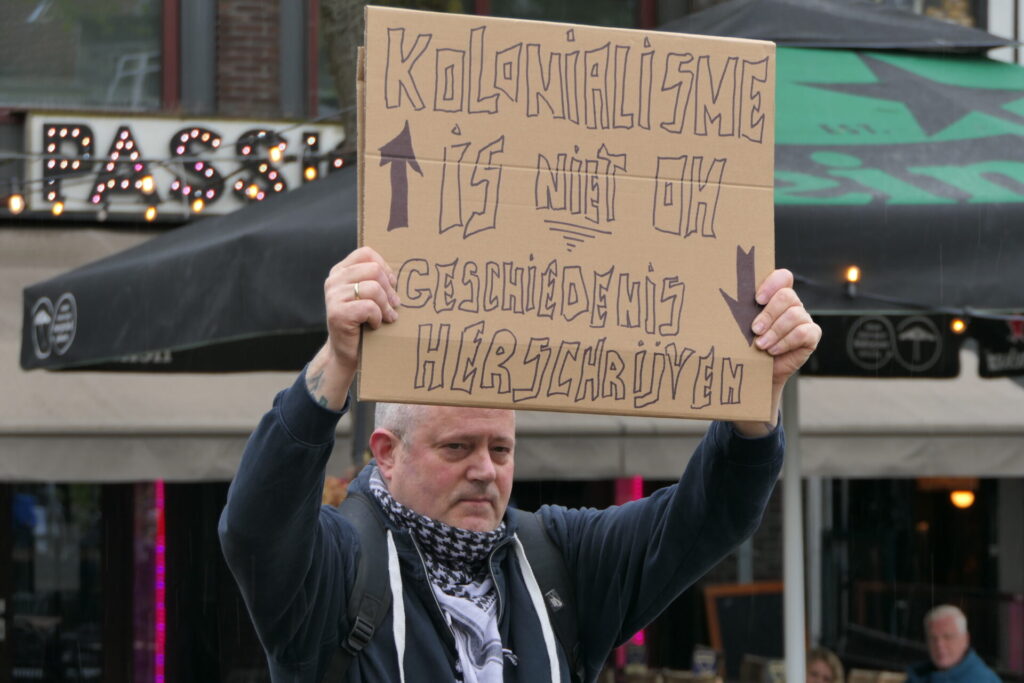 PASSI
KOLONIALISME
IS NIET OK
GESCHIEDENIS
HERSCHRIJVEN
EST.